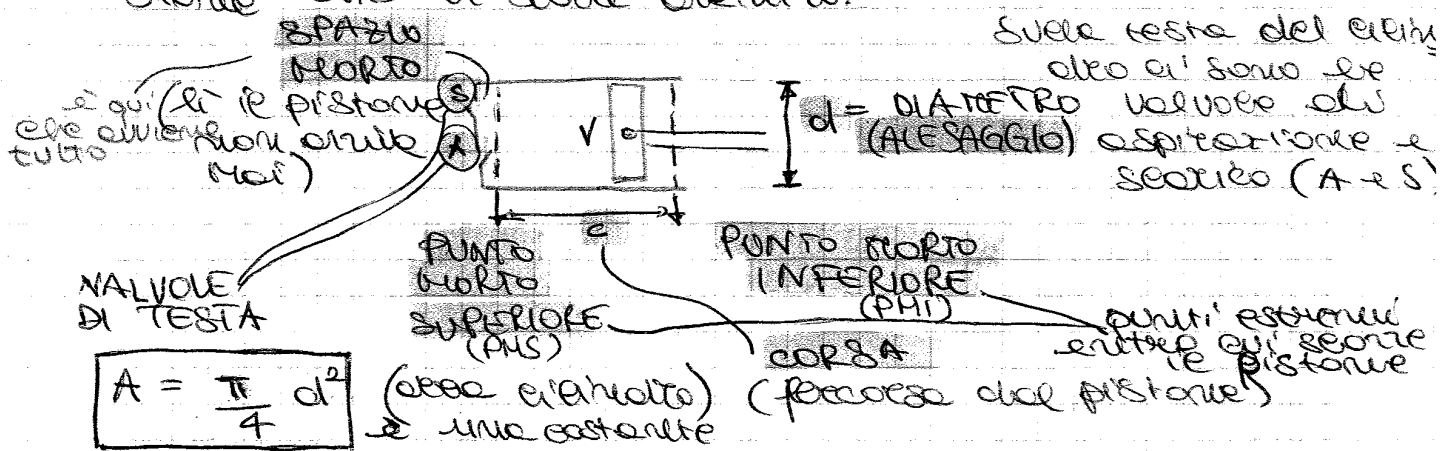 SPAZIO
MORTO
(lì il pistone
non arriva
mai)
è qui
che avviene
tutto
S
A
V
c
d = DIAMETRO
(ALESAGGIO)
Sulla testa del cilin
dro ci sono le
valvole di
aspirazione e
scarico (A e S)
VALVOLE
DI TESTA
PUNTO
MORTO
SUPERIORE
(PMS)
PUNTO MORTO
INFERIORE
(PMI)
punti estremi
entro cui scorre
il pistone
CORSA
(percorsa dal pistone)
A = π/4 d² (area cilindro)
è una costante